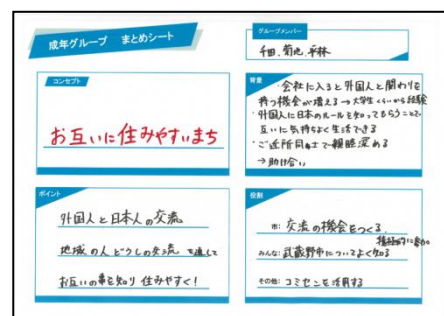 成年グループ まとめシート
グループメンバー
千田、菊地、平林
コンセプト
お互いに住みやすいまち
背景
・会社に入ると外国人と関わりを
持つ機会が増える→大学生くらいから経験
・外国人に日本のルールを知ってもらうことで
互いに気持ちよく生活できる
・ご近所同士で親睦深める
→助け合い
ポイント
外国人と日本人の交流
地域の人どうしの交流を通して
お互いの事を知り住みやすく!
役割
市: 交流の機会をつくる
積極的に参加
みんな: 武蔵野市についてよく知る
その他: コミセンを活用する